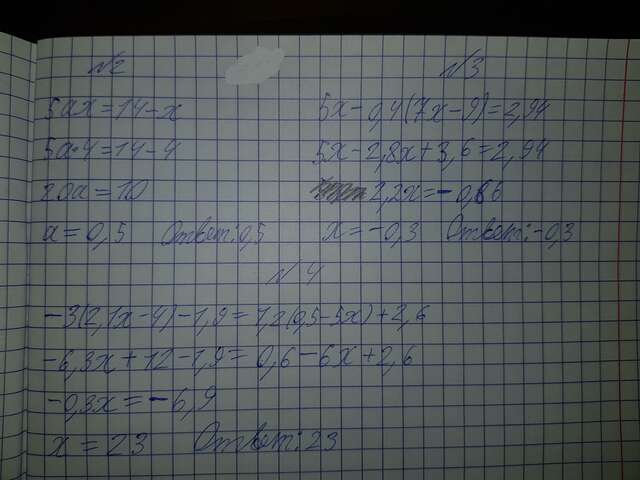 №2
5ax=14-x
5a·4=14-4
20a=10
a=0,5 Ответ:0,5
№3
5x-0,4(7x-9)=2,94
5x-2,8x+3,6=2,94
2,2x=-0,66
x=-0,3 Ответ:-0,3
№4
-3(2,1x-4)-1,9=1,2(0,5-5x)+2,6
-6,3x+12-1,9=0,6-6x+2,6
-0,3x=-6,9
x=23 Ответ:23